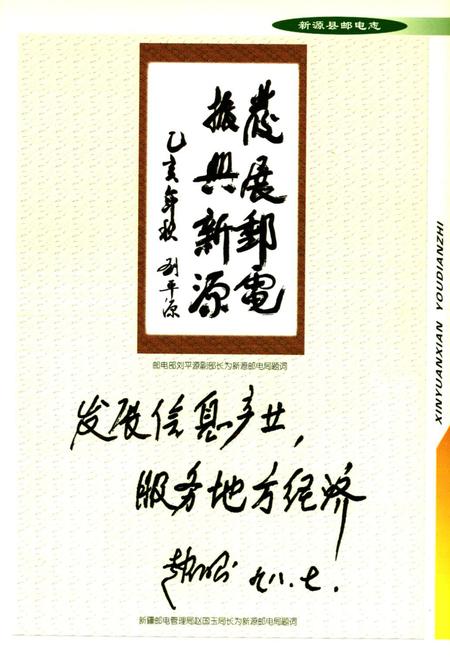 新源县邮电志
發展郵電
振興新源
乙亥年秋 刘平源
邮电部刘平源副部长为新源邮电局题词
发展信息产业，
服务地方经济
九八.七.
新疆邮电管理局赵国玉局长为新源邮电局题词
XINYUANXIAN YOUDIANZHI